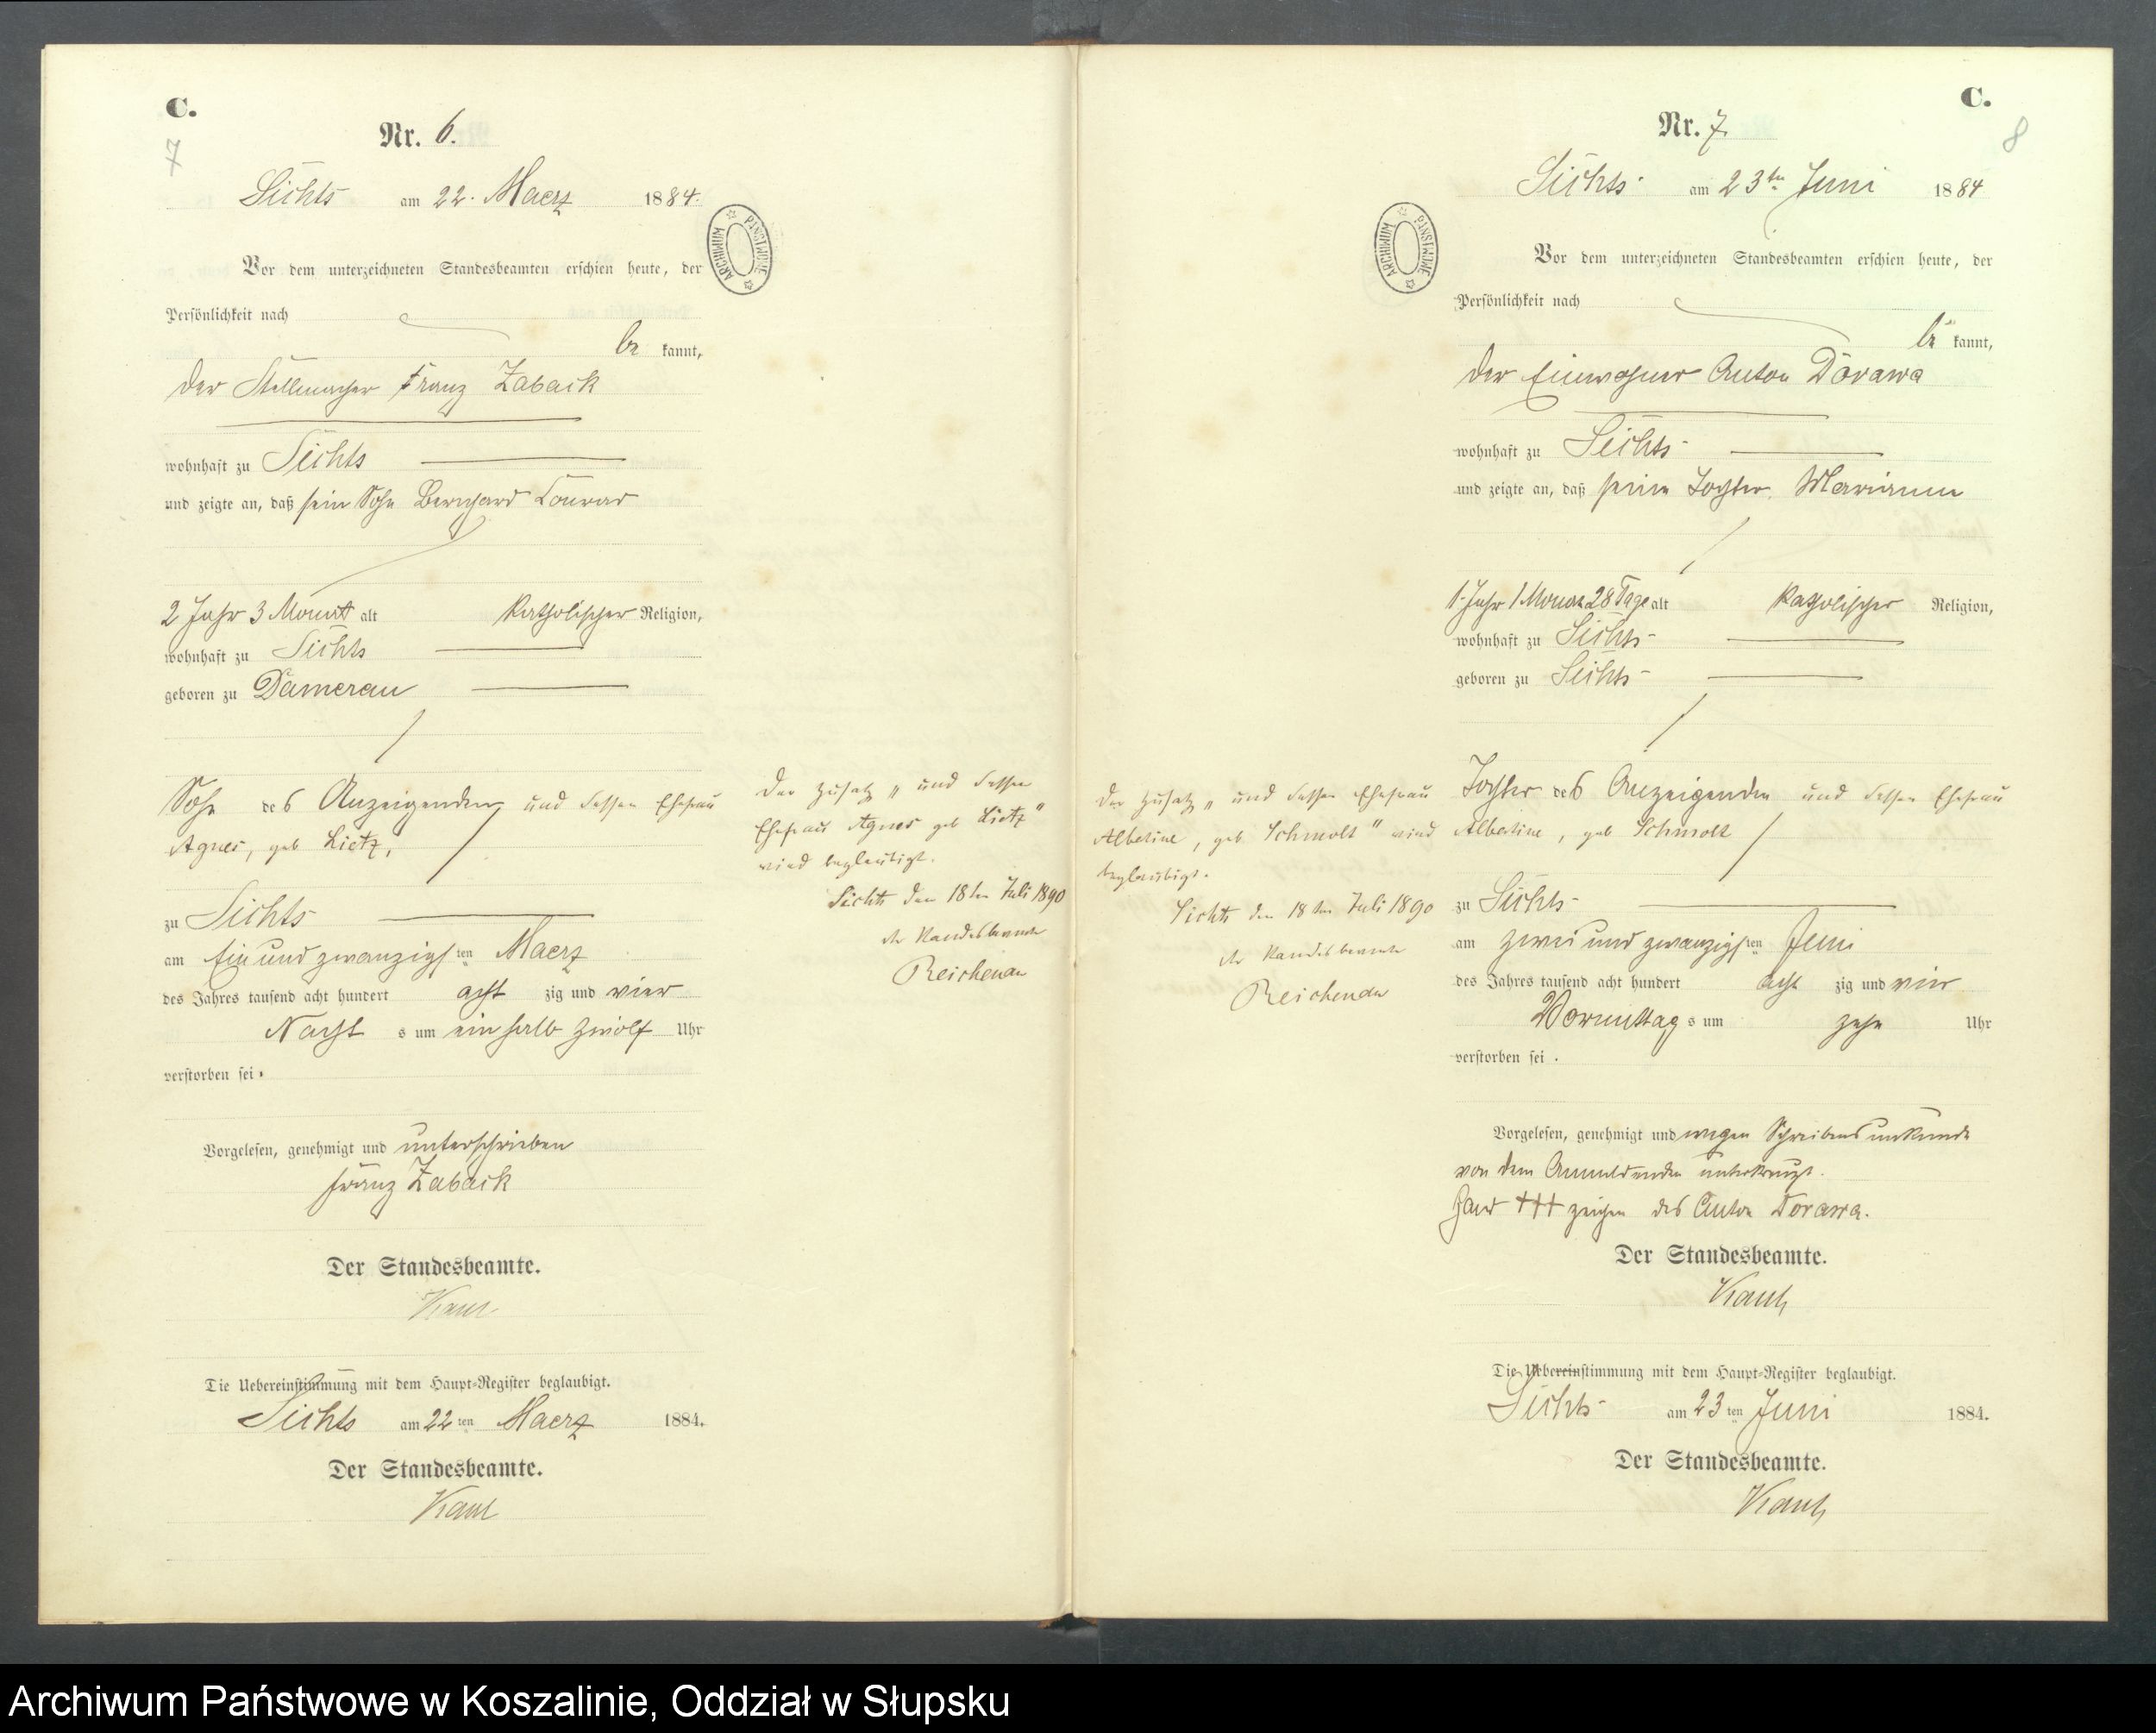 C.
7
Nr. 6.
Sichts am 22. Maerz 1884.
Vor dem unterzeichneten Standesbeamten erschien heute, der
Persönlichkeit nach
be kannt,
der Stellmacher Franz Zaback
wohnhaft zu Sichts
und zeigte an, daß sein Sohn Bernhard Conrad
2 Jahr 3 Monat alt katholischer Religion,
wohnhaft zu Sichts
geboren zu Damerau
Sohn des Anzeigenden und dessen Ehefrau
Agnes, geb Lietz,
zu Sichts
am Ein und zwanzigsten Maerz
des Jahres tausend acht hundert acht zig und vier
Nacht s um ein halb zwölf Uhr
verstorben sei.
Vorgelesen, genehmigt und unterschrieben
Franz Zaback
Der Standesbeamte.
Die Uebereinstimmung mit dem Haupt-Register beglaubigt.
Sichts am 22 ten Maerz 1884.
Der Standesbeamte.
ARCHIWUM PAŃSTWOWE
Der Zusatz „und dessen
Ehefrau Agnes geb Lietz"
wird beglaubigt.
Sichts den 18ten Juli 1890
der Standesbeamte
Reichenau
C.
8
Nr. 7.
Sichts am 23ten Juni 1884
ARCHIWUM PAŃSTWOWE
Vor dem unterzeichneten Standesbeamten erschien heute, der
Persönlichkeit nach
be kannt,
der Einwohner Anton Dorawa
wohnhaft zu Sichts
und zeigte an, daß seine Tochter Marianne
1 Jahr 1 Monat 28 Tage alt katholischer Religion,
wohnhaft zu Sichts
geboren zu Sichts
Tochter des Anzeigenden und dessen Ehefrau
Albertine, geb Schmolt
zu Sichts
am zwei und zwanzigsten Juni
des Jahres tausend acht hundert acht zig und vier
Vormittag s um zehn Uhr
verstorben sei.
Vorgelesen, genehmigt und wegen Schreibensunkunde
von dem Anmeldenden unterkreuzt.
Hand +++ zeichen des Anton Dorawa.
Der Standesbeamte.
Die Uebereinstimmung mit dem Haupt-Register beglaubigt.
Sichts am 23 ten Juni 1884.
Der Standesbeamte.
Der Zusatz „und dessen Ehefrau
Albertine, geb Schmolt" wird
beglaubigt.
Sichts den 18ten Juli 1890
der Standesbeamte
Reichenau
Archiwum Państwowe w Koszalinie, Oddział w Słupsku